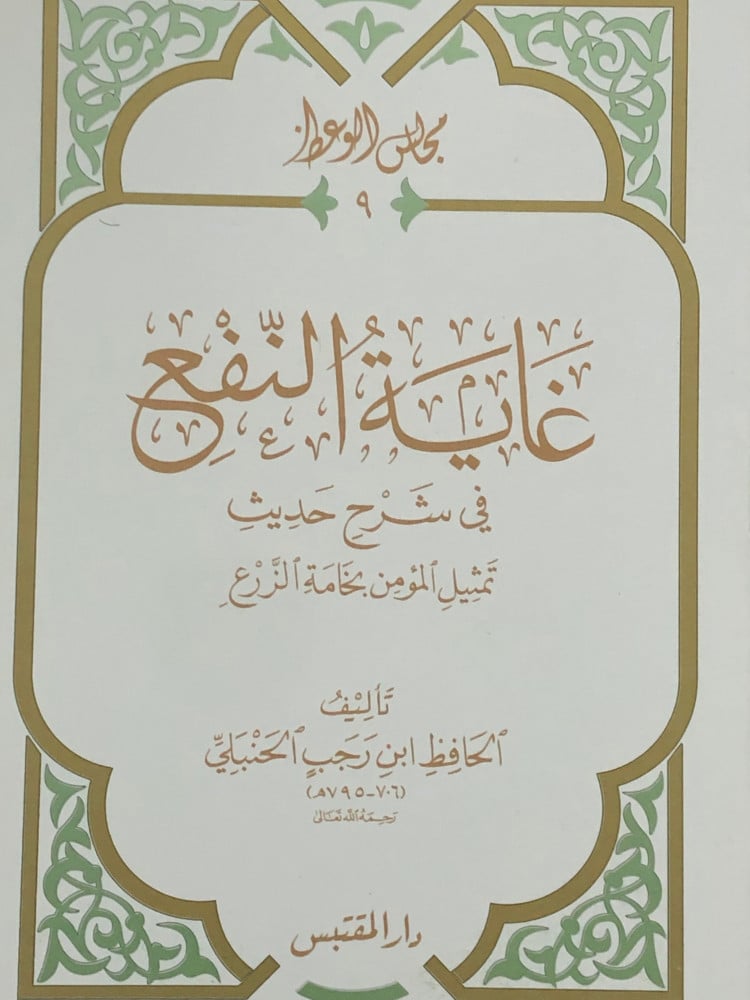 مجالس الوعظ
٩
غَايَةُ النَّفْعِ
في شَرْحِ حَدِيثِ
تَمْثِيلِ ٱلمُؤمِنِ بِخَامَةِ ٱلزَّرْعِ
تَأليْفُ
ٱلحَافِظِ ابنِ رَجَبٍ ٱلحَنْبَلِيِّ
(٧٠٦-٧٩٥هـ)
رَحِمَهُ اللَّه تَعَالى
دار المقتبس